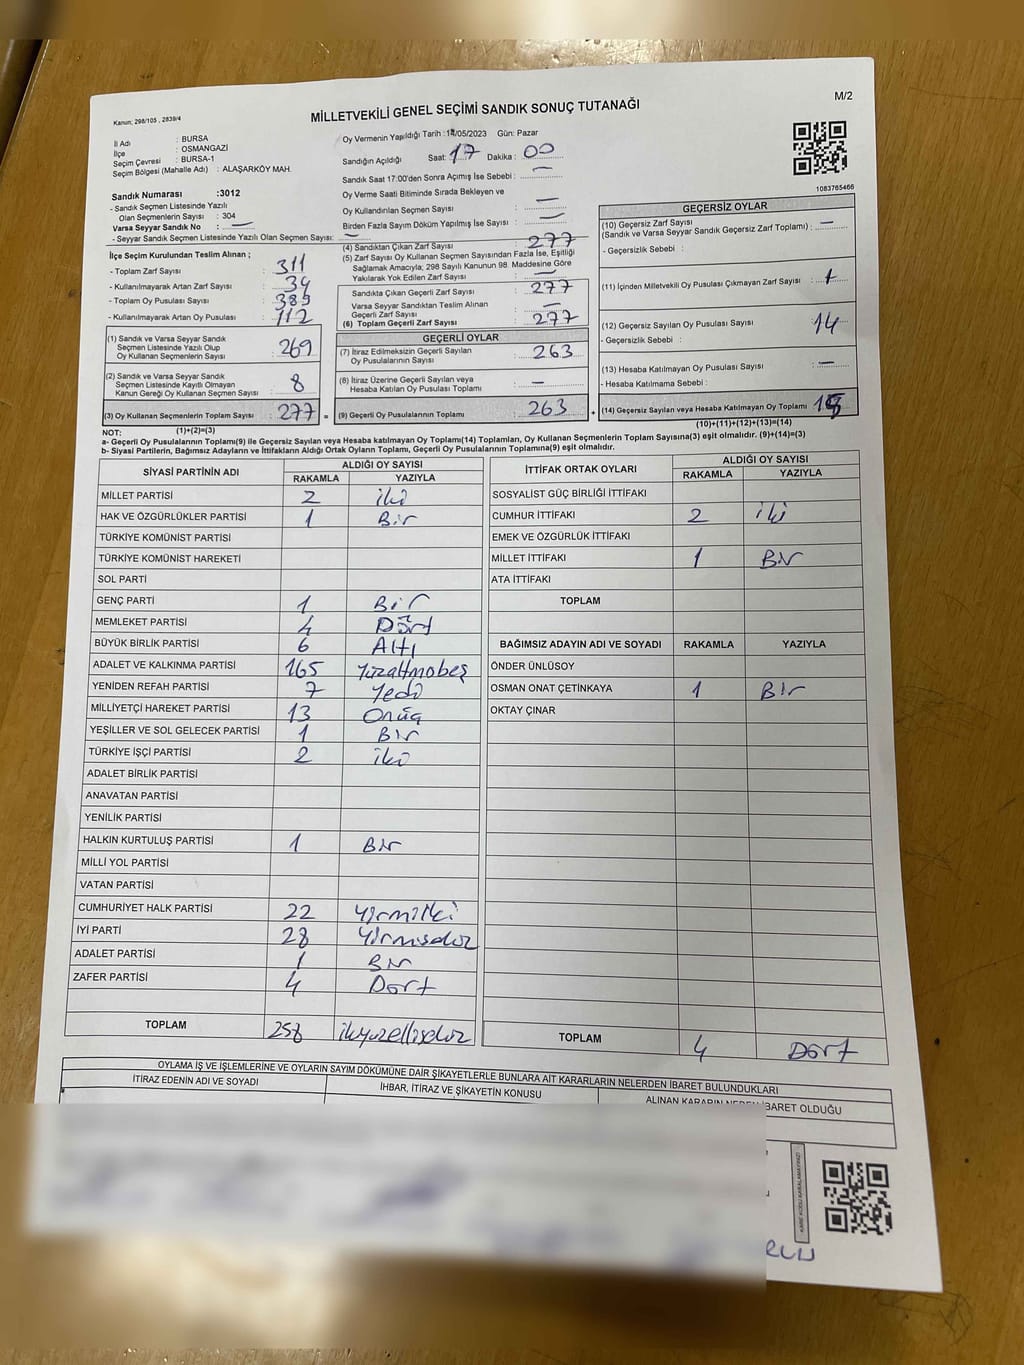 M/2
Kanun; 298/105 , 2839/4
MİLLETVEKİLİ GENEL SEÇİMİ SANDIK SONUÇ TUTANAĞI
İl Adı : BURSA
İlçe : OSMANGAZİ
Seçim Çevresi : BURSA-1
Seçim Bölgesi (Mahalle Adı) : ALAŞARKÖY MAH.
Sandık Numarası :3012
- Sandık Seçmen Listesinde Yazılı
Olan Seçmenlerin Sayısı : 304
Varsa Seyyar Sandık No : —
- Seyyar Sandık Seçmen Listesinde Yazılı Olan Seçmen Sayısı: —
İlçe Seçim Kurulundan Teslim Alınan ;
- Toplam Zarf Sayısı : 311
- Kullanılmayarak Artan Zarf Sayısı : 34
- Toplam Oy Pusulası Sayısı : 389
- Kullanılmayarak Artan Oy Pusulası : 112
(1) Sandık ve Varsa Seyyar Sandık
Seçmen Listesinde Yazılı Olup
Oy Kullanan Seçmenlerin Sayısı : 269
(2) Sandık ve Varsa Seyyar Sandık
Seçmen Listesinde Kayıtlı Olmayan
Kanun Gereği Oy Kullanan Seçmen Sayısı : 8
(3) Oy Kullanan Seçmenlerin Toplam Sayısı : 277 =
(1)+(2)=(3)
Oy Vermenin Yapıldığı Tarih :14/05/2023 Gün: Pazar
Sandığın Açıldığı Saat: 17 Dakika : 00
Sandık Saat 17:00'den Sonra Açımış İse Sebebi : —
Oy Verme Saati Bitiminde Sırada Bekleyen ve
Oy Kullandırılan Seçmen Sayısı : —
Birden Fazla Sayım Döküm Yapılmış İse Sayısı : —
(4) Sandıktan Çıkan Zarf Sayısı : 277
(5) Zarf Sayısı Oy Kullanan Seçmen Sayısından Fazla İse, Eşitliği
Sağlamak Amacıyla; 298 Sayılı Kanunun 98. Maddesine Göre
Yakılarak Yok Edilen Zarf Sayısı : —
Sandıkta Çıkan Geçerli Zarf Sayısı : 277
Varsa Seyyar Sandıktan Teslim Alınan
Geçerli Zarf Sayısı : —
(6) Toplam Geçerli Zarf Sayısı : 277
GEÇERLİ OYLAR
(7) İtiraz Edilmeksizin Geçerli Sayılan
Oy Pusulalarının Sayısı : 263
(8) İtiraz Üzerine Geçerli Sayılan veya
Hesaba Katılan Oy Pusulası Toplamı : —
(9) Geçerli Oy Pusulalarının Toplamı : 263 +
1083765466
GEÇERSİZ OYLAR
(10) Geçersiz Zarf Sayısı : —
(Sandık ve Varsa Seyyar Sandık Geçersiz Zarf Toplamı)
- Geçersizlik Sebebi :
(11) İçinden Milletvekili Oy Pusulası Çıkmayan Zarf Sayısı :
(12) Geçersiz Sayılan Oy Pusulası Sayısı : 14
- Geçersizlik Sebebi :
(13) Hesaba Katılmayan Oy Pusulası Sayısı : —
- Hesaba Katılmama Sebebi :
(14) Geçersiz Sayılan veya Hesaba Katılmayan Oy Toplamı
(10)+(11)+(12)+(13)=(14)
NOT:
a- Geçerli Oy Pusulalarının Toplamı(9) ile Geçersiz Sayılan veya Hesaba katılmayan Oy Toplamı(14) Toplamları, Oy Kullanan Seçmenlerin Toplam Sayısına(3) eşit olmalıdır. (9)+(14)=(3)
b- Siyasi Partilerin, Bağımsız Adayların ve İttifakların Aldığı Ortak Oyların Toplamı, Geçerli Oy Pusulalarının Toplamına(9) eşit olmalıdır.
SİYASİ PARTİNİN ADI ALDIĞI OY SAYISI
RAKAMLA YAZIYLA
MİLLET PARTİSİ 2 iki
HAK VE ÖZGÜRLÜKLER PARTİSİ 1 Bir
TÜRKİYE KOMÜNİST PARTİSİ
TÜRKİYE KOMÜNİST HAREKETİ
SOL PARTİ
GENÇ PARTİ 1 Bir
MEMLEKET PARTİSİ 4 Dört
BÜYÜK BİRLİK PARTİSİ 6 Altı
ADALET VE KALKINMA PARTİSİ 165 Yüzaltmışbeş
YENİDEN REFAH PARTİSİ 7 Yedi
MİLLİYETÇİ HAREKET PARTİSİ 13 Onüç
YEŞİLLER VE SOL GELECEK PARTİSİ 1 Bir
TÜRKİYE İŞÇİ PARTİSİ 2 iki
ADALET BİRLİK PARTİSİ
ANAVATAN PARTİSİ
YENİLİK PARTİSİ
HALKIN KURTULUŞ PARTİSİ 1 Bir
MİLLİ YOL PARTİSİ
VATAN PARTİSİ
CUMHURİYET HALK PARTİSİ 22 Yirmiiki
İYİ PARTİ 28 Yirmisekiz
ADALET PARTİSİ 1 Bir
ZAFER PARTİSİ 4 Dört
TOPLAM 258 ikiyüzellisekiz
İTTİFAK ORTAK OYLARI ALDIĞI OY SAYISI
RAKAMLA YAZIYLA
SOSYALİST GÜÇ BİRLİĞİ İTTİFAKI
CUMHUR İTTİFAKI 2 iki
EMEK VE ÖZGÜRLÜK İTTİFAKI
MİLLET İTTİFAKI 1 Bir
ATA İTTİFAKI
TOPLAM
BAĞIMSIZ ADAYIN ADI VE SOYADI RAKAMLA YAZIYLA
ÖNDER ÜNLÜSOY
OSMAN ONAT ÇETİNKAYA 1 Bir
OKTAY ÇINAR
TOPLAM 4 Dört
OYLAMA İŞ VE İŞLEMLERİNE VE OYLARIN SAYIM DÖKÜMÜNE DAİR ŞİKAYETLERLE BUNLARA AİT KARARLARIN NELERDEN İBARET BULUNDUKLARI
İTİRAZ EDENİN ADI VE SOYADI İHBAR, İTİRAZ VE ŞİKAYETİN KONUSU ALINAN KARARIN NEDEN İBARET OLDUĞU
KARE KODU KARALAMAYINIZ!